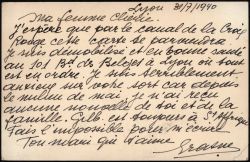 Lyon 31/7/1940
Ma femme chérie
J'espère que par le canal de la Croix
Rouge cette carte te parviendra
Je suis démobilisé et en bonne santé
au 101 Bd des Belges à Lyon où tout
est en ordre. Je suis terriblement
anxieux sur votre sort car depuis
mon départ de mai, je n'ai reçu
aucune nouvelle de toi et de la
famille. est toujours à St
Fais l'impossible pour m'écrire
Ton mari qui t'aime